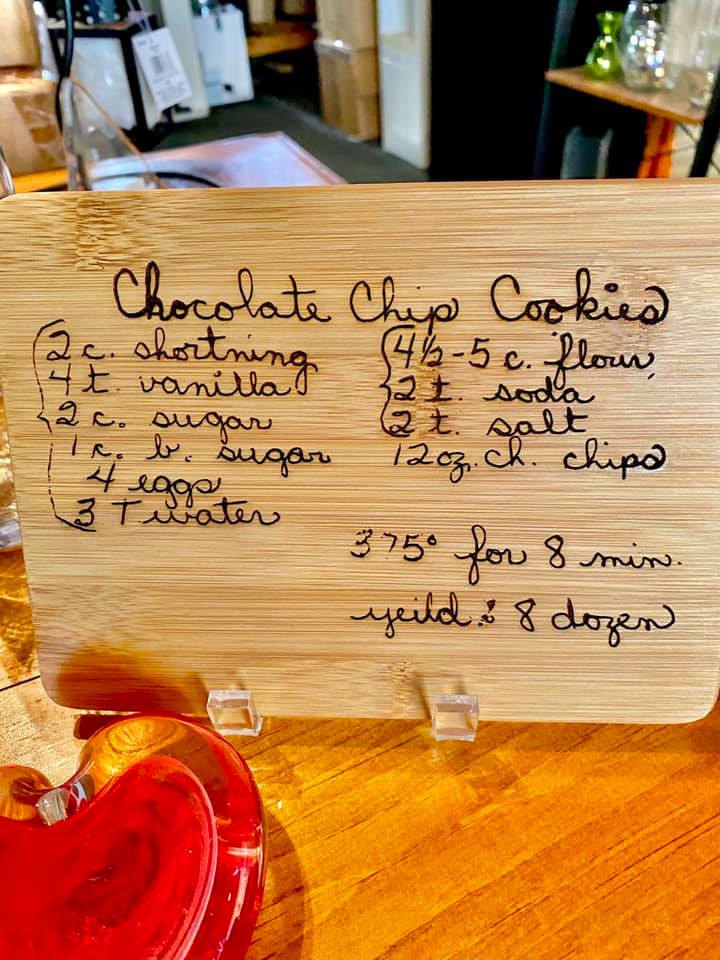 Chocolate Chip Cookies
2 c. shortning
4 t. vanilla
2 c. sugar
1 c. b. sugar
4 eggs
3 T water
4½-5 c. flour
2 t. soda
2 t. salt
12 oz. ch. chips
375° for 8 min.
yeild: 8 dozen